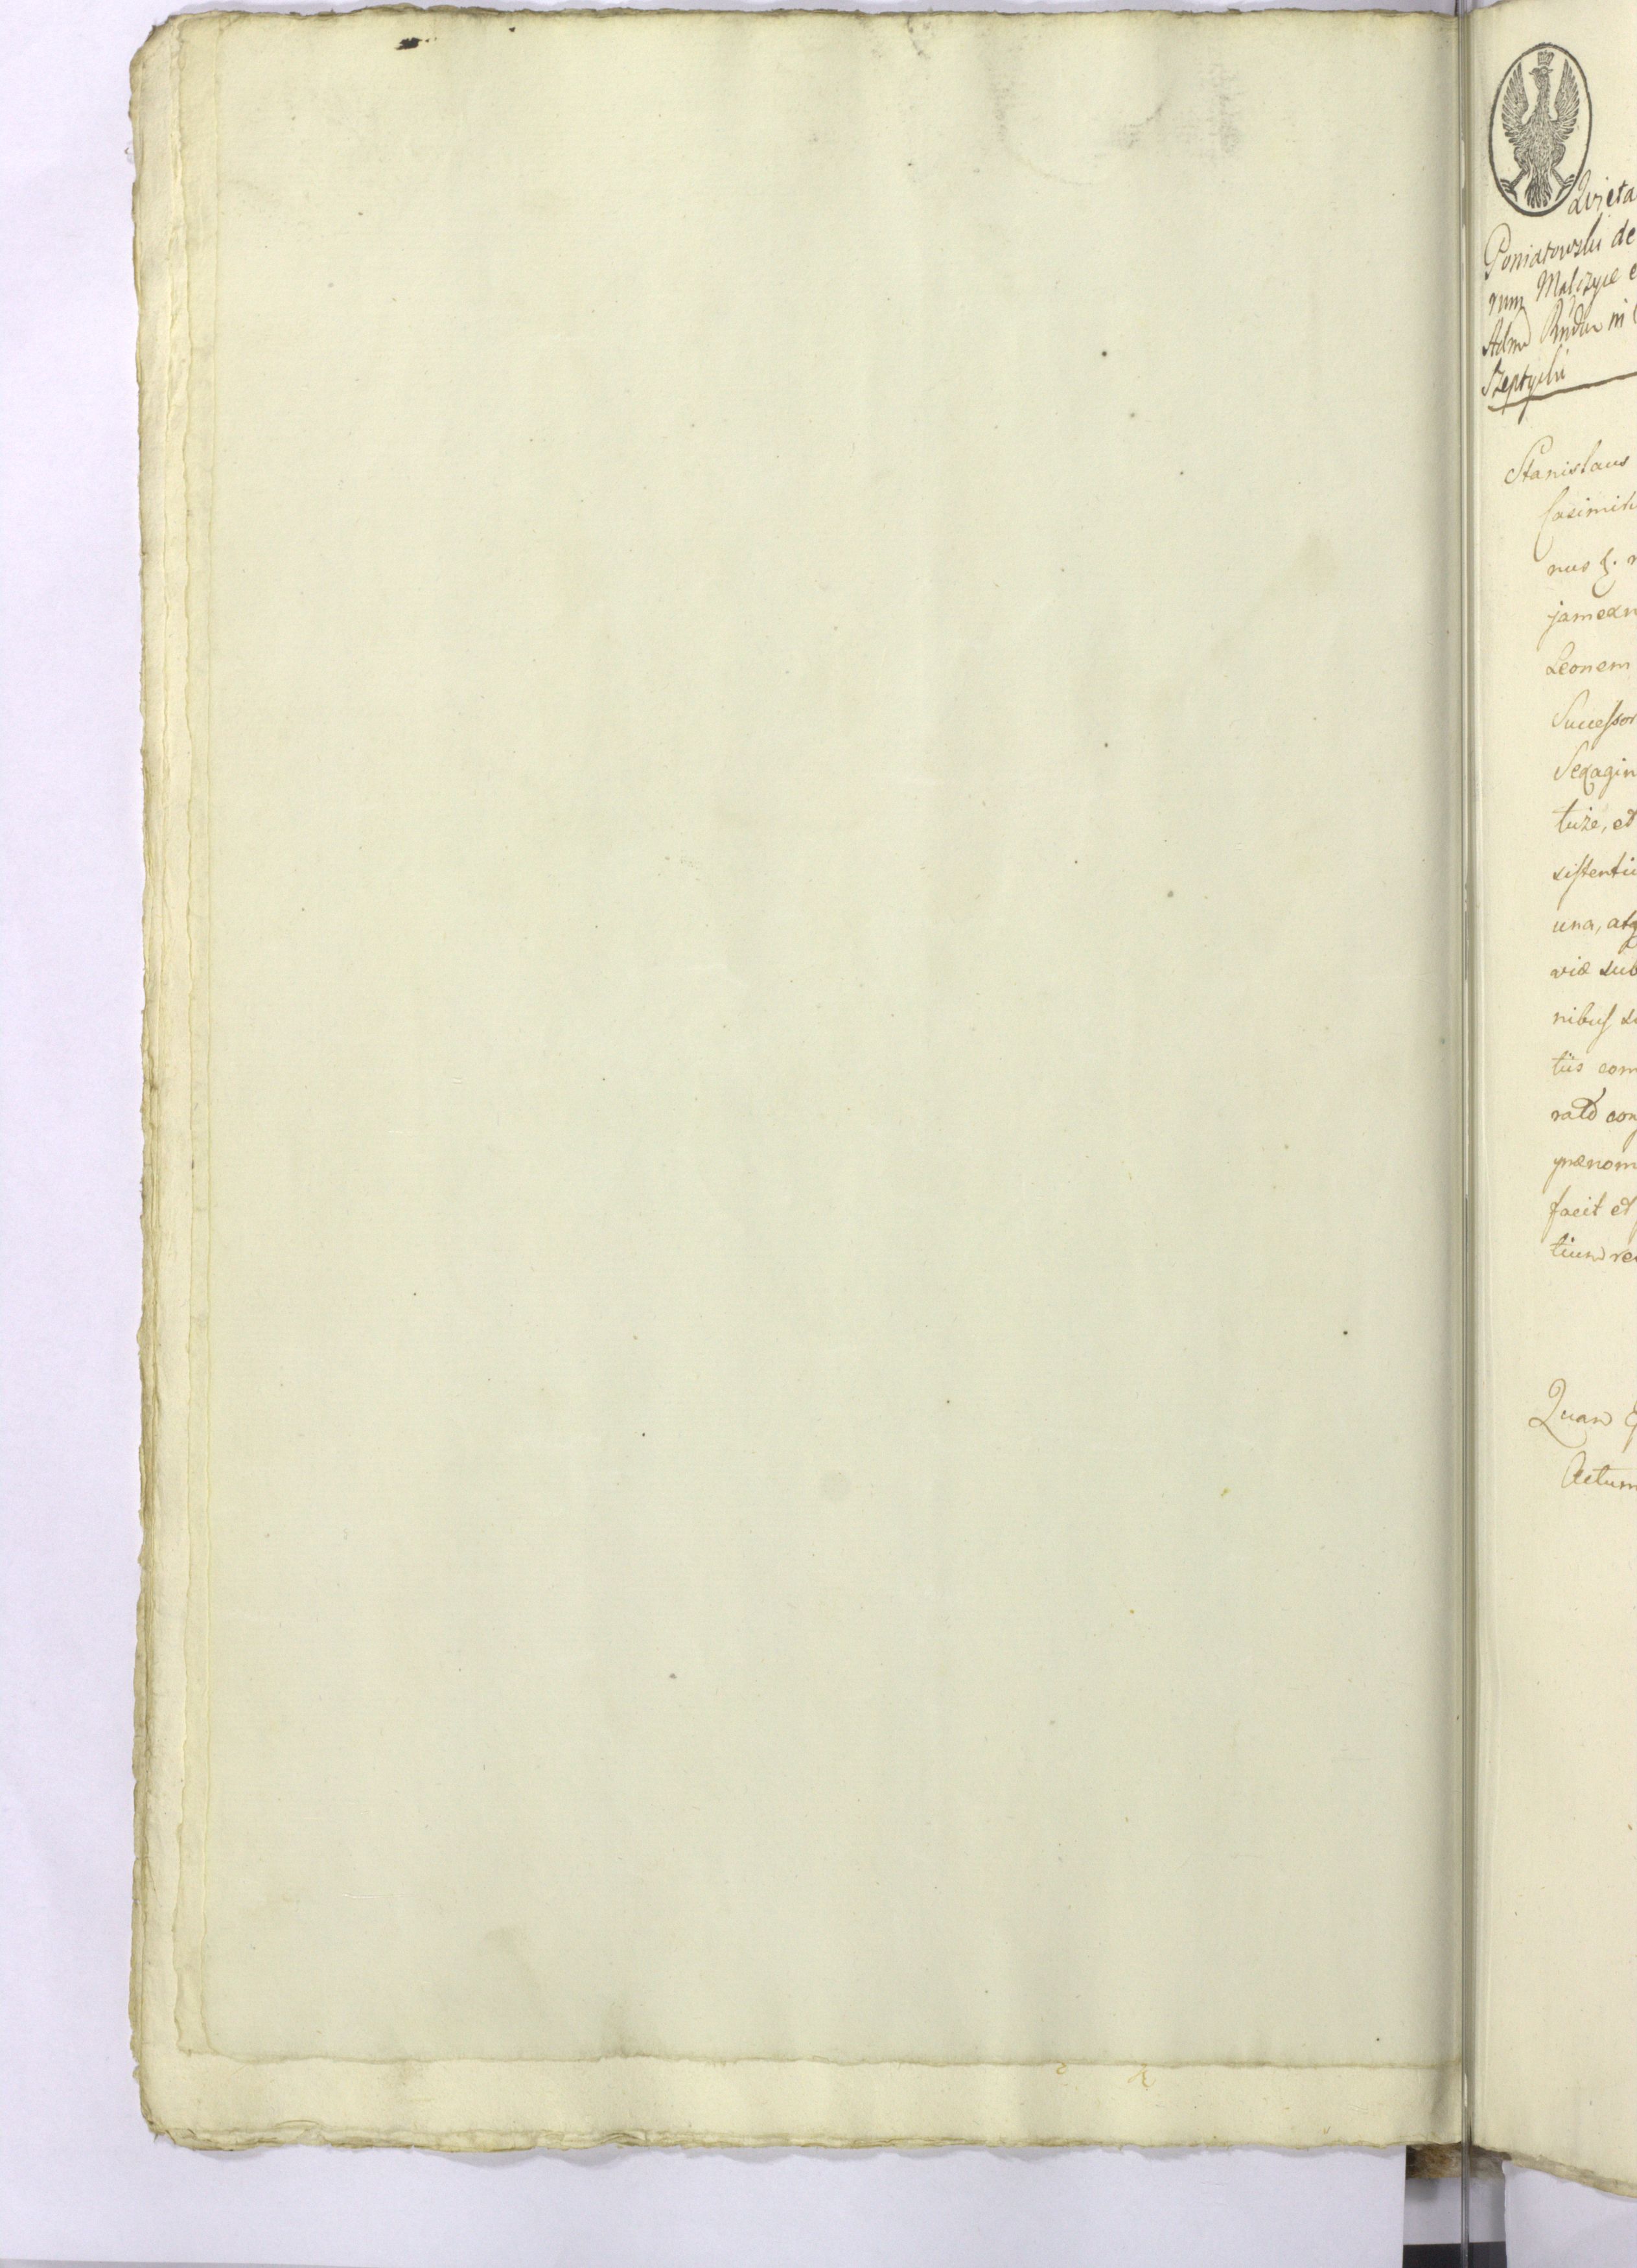 Quieta
Poniatowski de
rum Malczyce e
Szeptycki
Stanislaus
Casimih
nus
jamexn
Leonem
Successor
Sexagin
tuże, et
sistentiu
una, atq
viæ sub
nibus su
tiis com
rato con
prænom
facit et
tium re
Quam
Actum